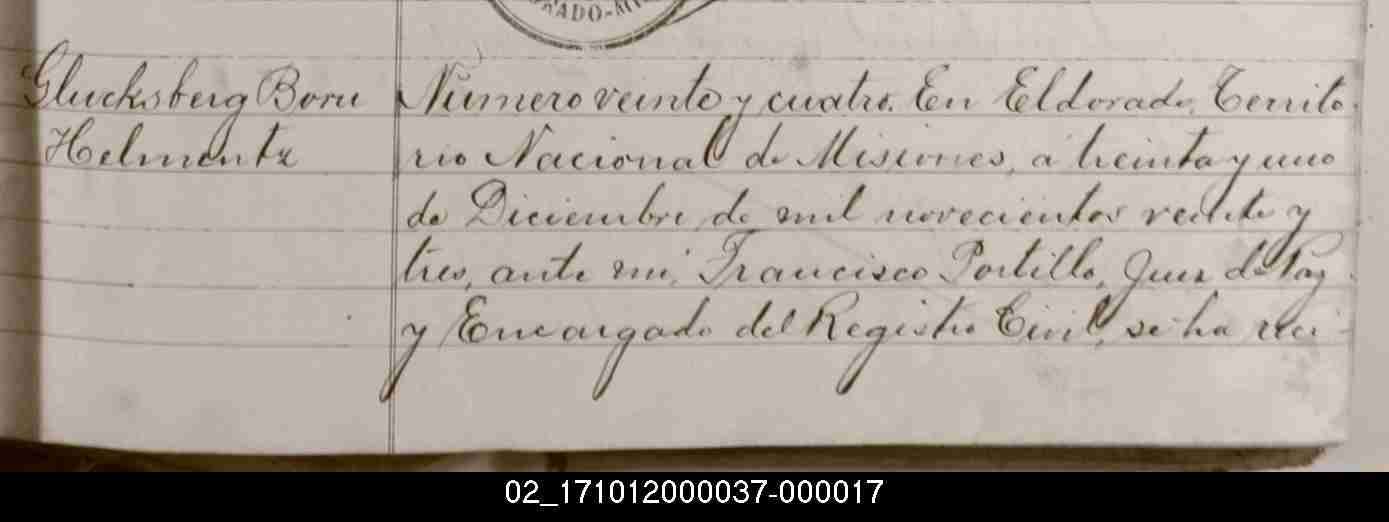 ORADO-MI
Glucksberg Boru
Helmentz
Número veinte y cuatro. En Eldorado, Territo-
rio Nacional de Misiones, a treinta y uno
de Diciembre de mil novecientos veinte y
tres, ante mi, Francisco Portillo, Juez de Paz
y Encargado del Registro Civil, se ha reci-
02_171012000037-000017